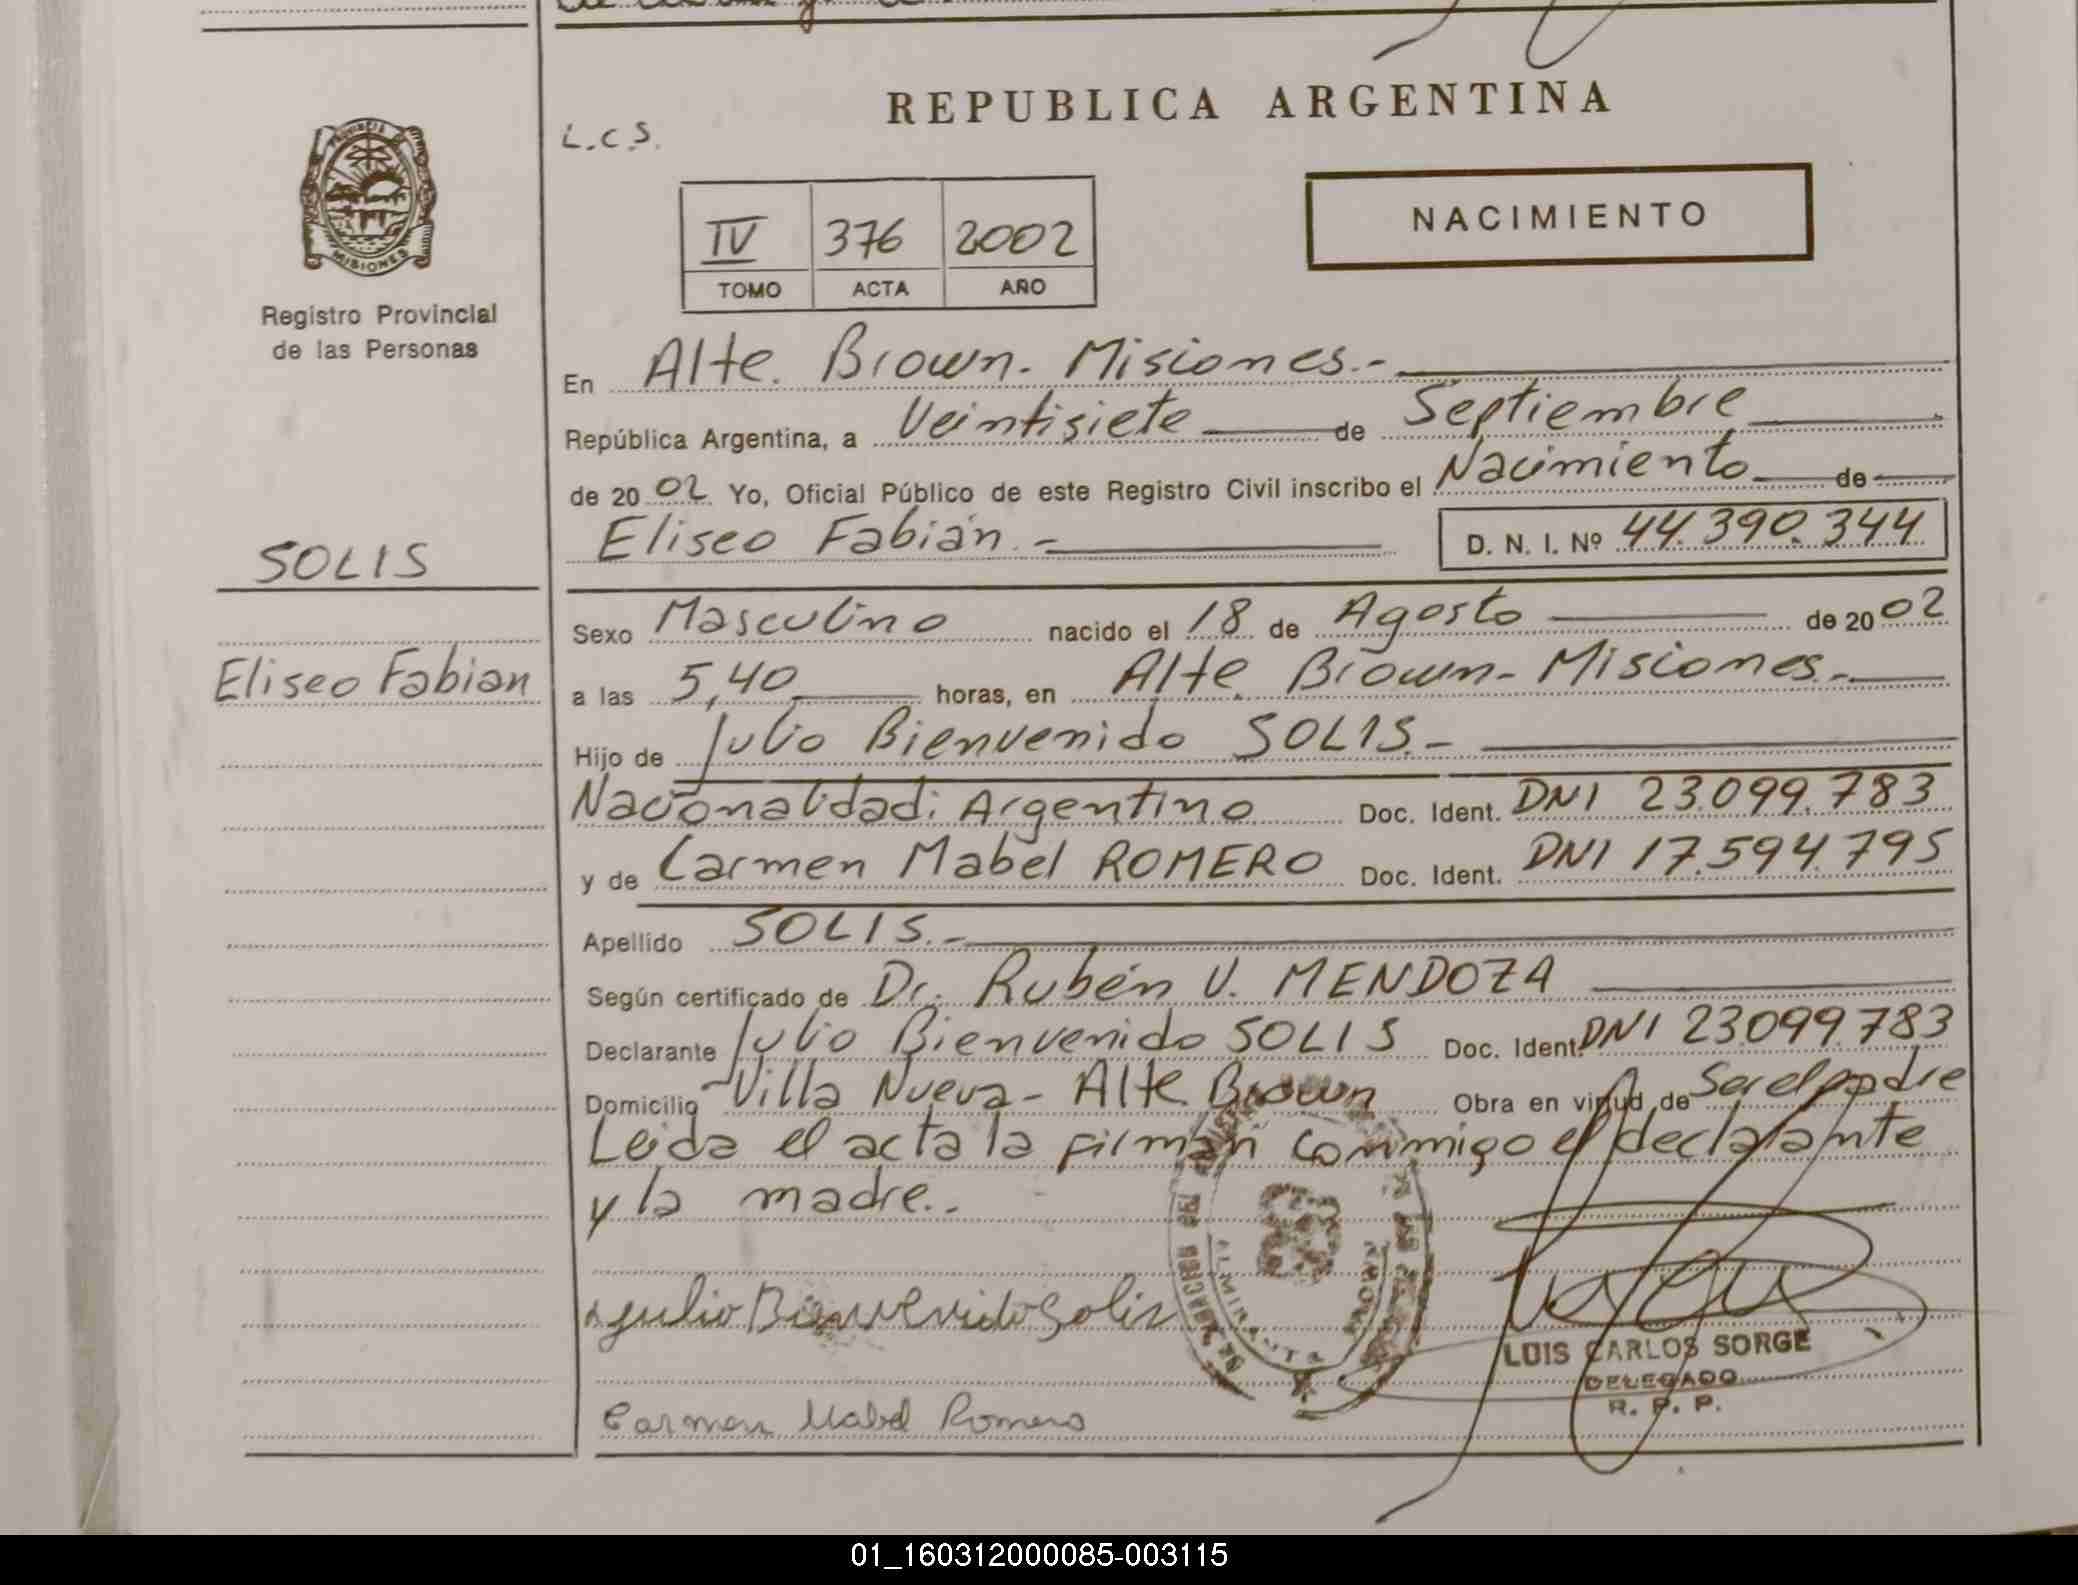 REPUBLICA ARGENTINA
L.C.S.
PROVINCIA
MISIONES
Registro Provincial
de las Personas
IV 376 2002
TOMO ACTA AÑO
NACIMIENTO
En Alte. Brown. Misiones.-
República Argentina, a Veintisiete de Septiembre
de 2002 Yo, Oficial Público de este Registro Civil inscribo el Nacimiento de
Eliseo Fabián.- D. N. I. Nº 44.390.344
SOLIS
Eliseo Fabian
Sexo Masculino nacido el 18 de Agosto de 2002
a las 5,40 horas, en Alte Brown- Misiones.-
Hijo de Julio Bienvenido SOLIS.-
Nacionalidad: Argentino Doc. Ident. DNI 23.099.783
y de Carmen Mabel ROMERO Doc. Ident. DNI 17.594.795
Apellido SOLIS.-
Según certificado de Dr. Rubén V. MENDOZA
Declarante Julio Bienvenido SOLIS Doc. Ident. DNI 23.099.783
Domicilio Villa Nueva- Alte Brown Obra en virtud de Ser el padre
Leida el acta la firman conmigo el declarante
y la madre.-
Julio Bienvenido Solis
LUIS CARLOS SORGE
DELEGADO
R. P. P.
Carmen Mabel Romero
01_160312000085-003115